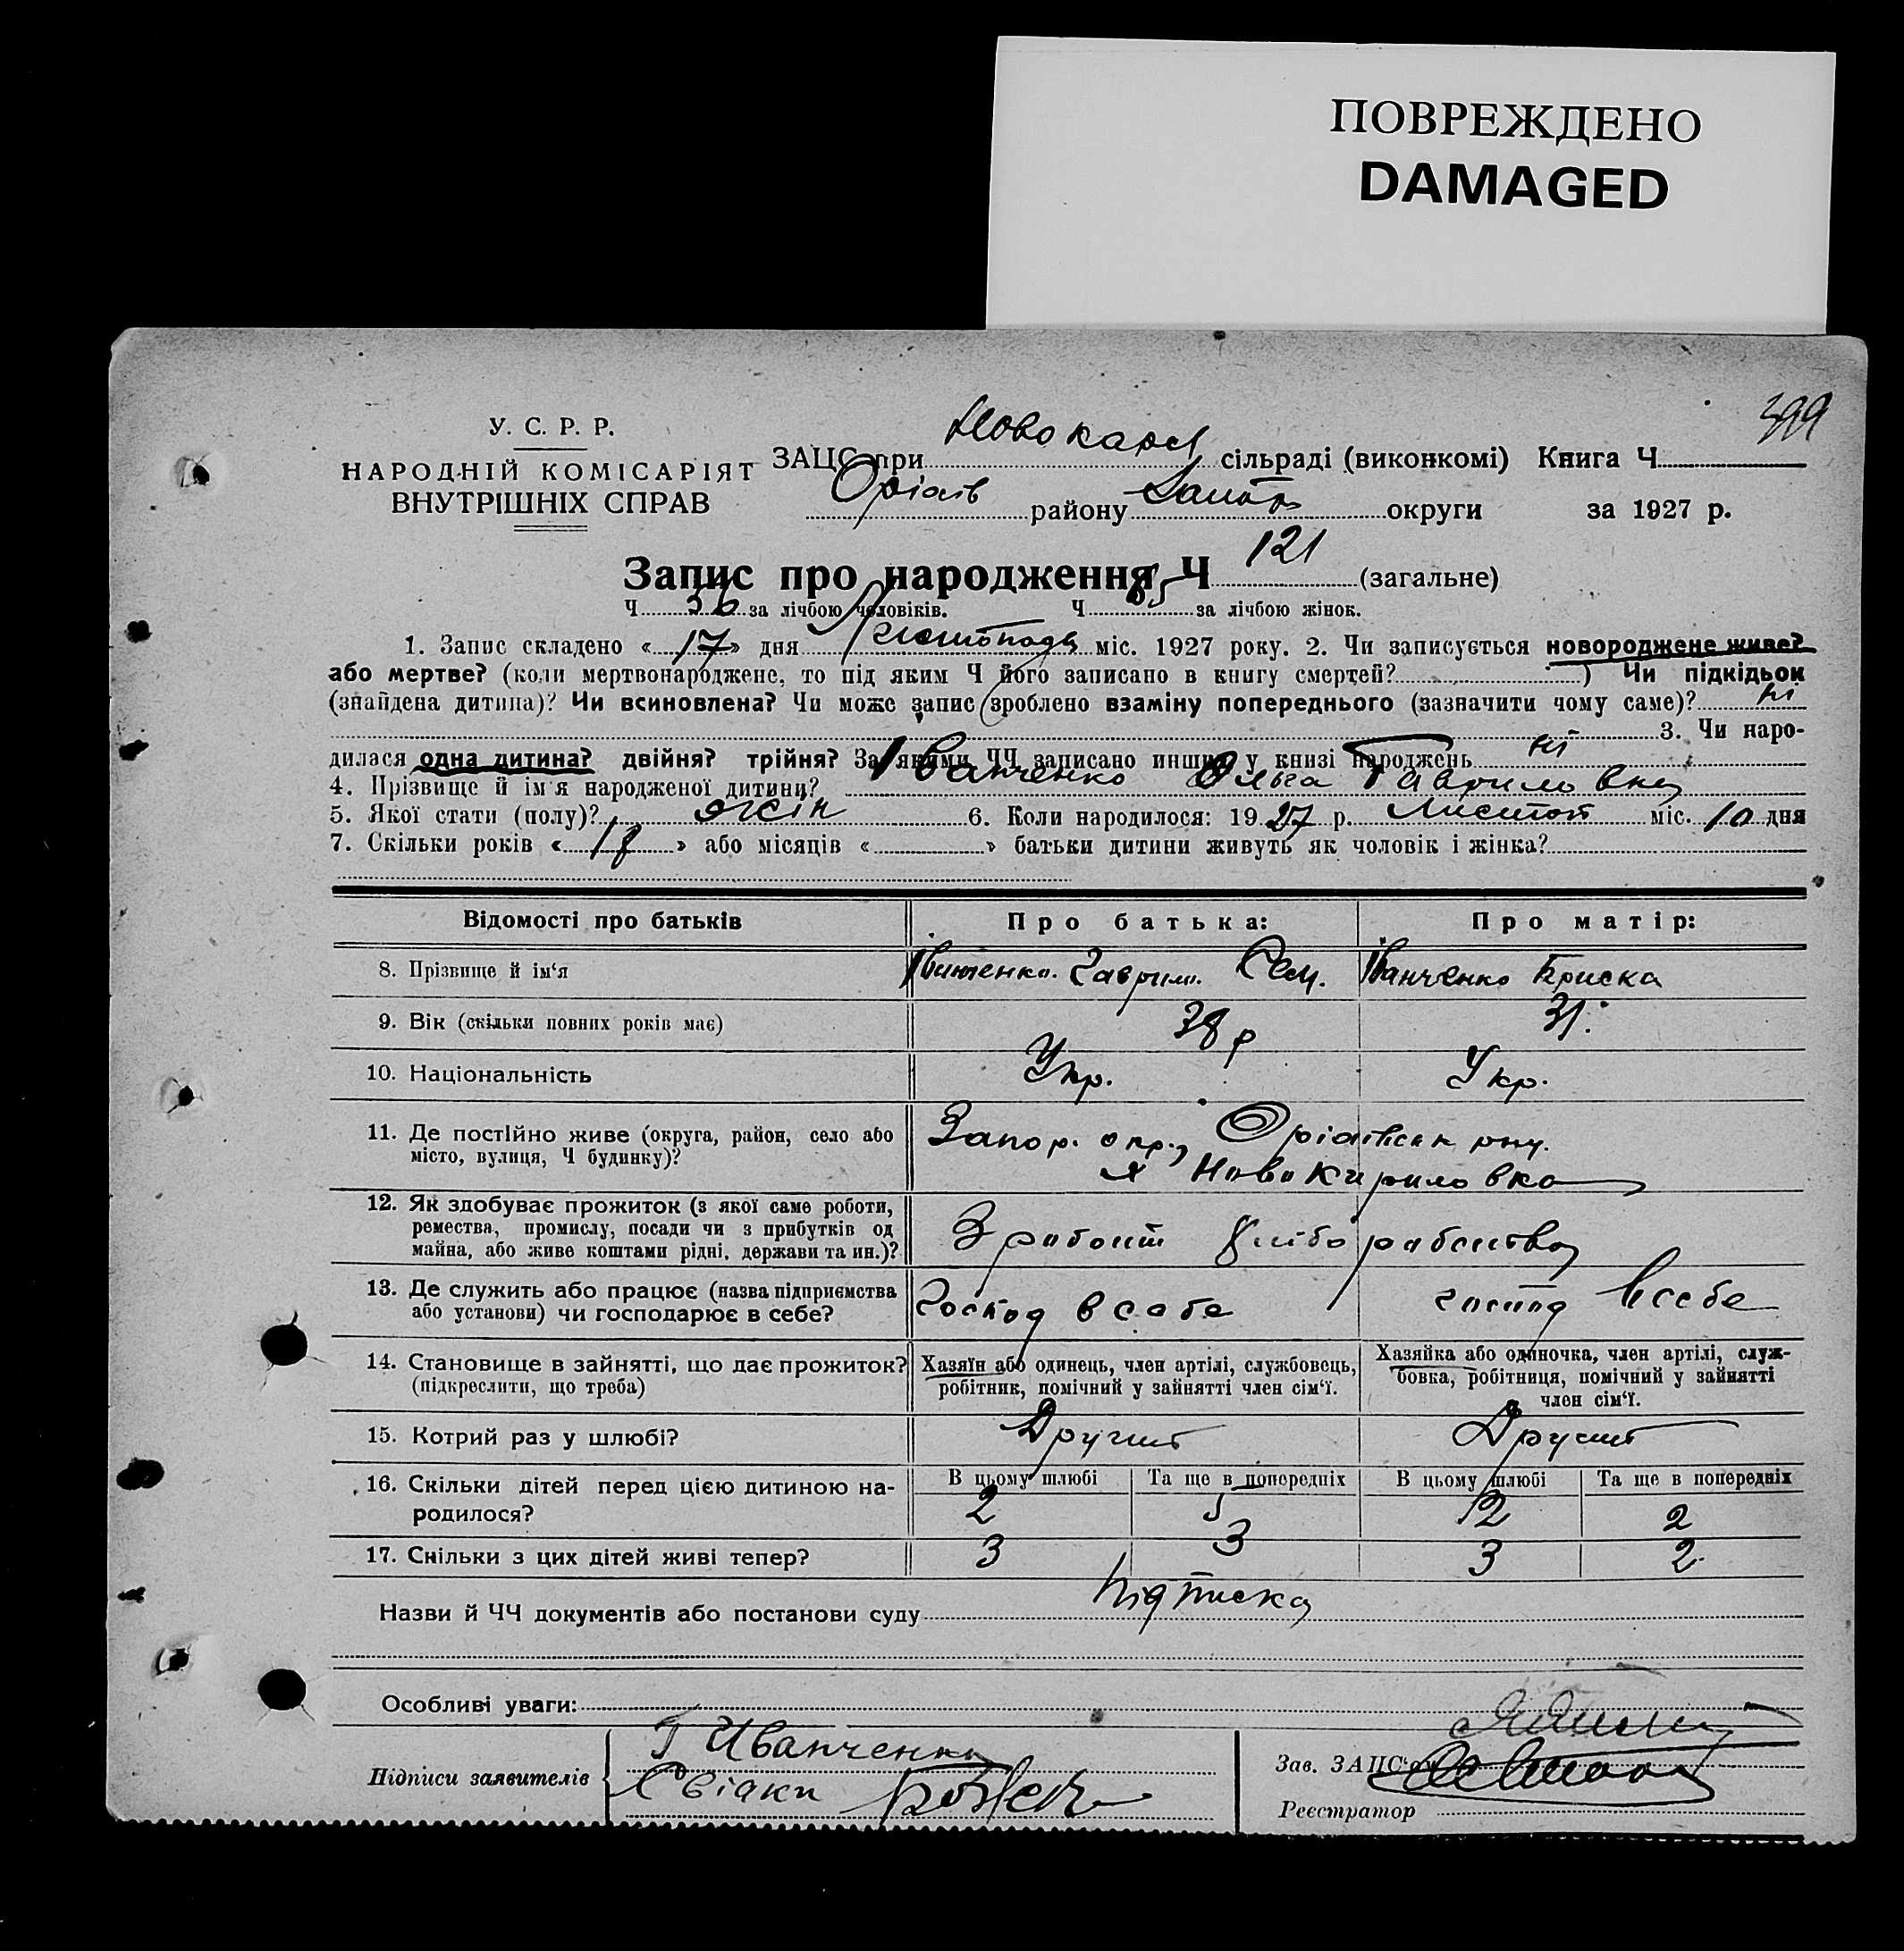 ПОВРЕЖДЕНО
DAMAGED
399
У. С. Р. Р.
НАРОДНІЙ КОМІСАРІЯТ
ВНУТРІШНІХ СПРАВ
ЗАЦС при Новокарл сільраді (виконкомі) Книга Ч.
Оріхів району Запор округи за 1927 р.
Запис про народження Ч 121 (загальне)
Ч 56 за лічбою чоловіків. Ч 65 за лічбою жінок.
1. Запис складено « 17 » дня Листопада міс. 1927 року. 2. Чи записується новороджене живе?
або мертве? (коли мертвонароджене, то під яким Ч його записано в книгу смертей? ) Чи підкідьок
(знайдена дитина)? Чи всиновлена? Чи може запис зроблено взаміну попереднього (зазначити чому саме)? ні
3. Чи наро-
дилася одна дитина? двійня? трійня? За якими ЧЧ записано инших у книзі народжень ні
4. Прізвище й ім'я народженої дитини? Іванченко Ольга Гавриловна
5. Якої стати (полу)? жін 6. Коли народилося: 1927 р. Листоп міс. 10 дня
7. Скільки років « » або місяців « » батьки дитини живуть як чоловік і жінка?
Відомості про батьків Про батька: Про матір:
8. Прізвище й ім'я Іванченко Гаврило Сем. Іванченко
9. Вік (скільки повних років має) 38 р 31.
10. Національність Укр. Укр.
11. Де постійно живе (округа, район, село або Запор. окр., Оріхівськ рну.
місто, вулиця, Ч будинку)? Новокириловка
12. Як здобуває прожиток (з якої саме роботи,
ремества, промислу, посади чи з прибутків од З работи хліборобства
майна, або живе коштами рідні, держави та ин.)?
13. Де служить або працює (назва підприємства
або установи) чи господарює в себе? Господ в себе господ в себе
14. Становище в зайнятті, що дає прожиток? Хазяїн або одинець, член артілі, службовець, Хазяйка або одиночка, член артілі, служ-
(підкреслити, що треба) робітник, помічний у зайнятті член сім'ї. бовка, робітниця, помічний у зайнятті
член сім'ї.
15. Котрий раз у шлюбі? Другий Другий
16. Скільки дітей перед цією дитиною на- В цьому шлюбі Та ще в попередніх В цьому шлюбі Та ще в попередніх
родилося? 2 5 2 2
17. Скільки з цих дітей живі тепер? 3 3 3 2
Назви й ЧЧ документів або постанови суду Підписка
Особливі уваги:
Підписи заявителів Г Иванченко
Свідки
Зав. ЗАЦС'ом
Реєстратор